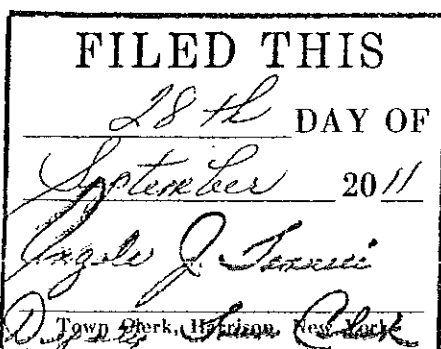 FILED THIS
28th DAY OF
September 2011
J.
Deputy Town Clerk
Town Clerk, Harrison, New York